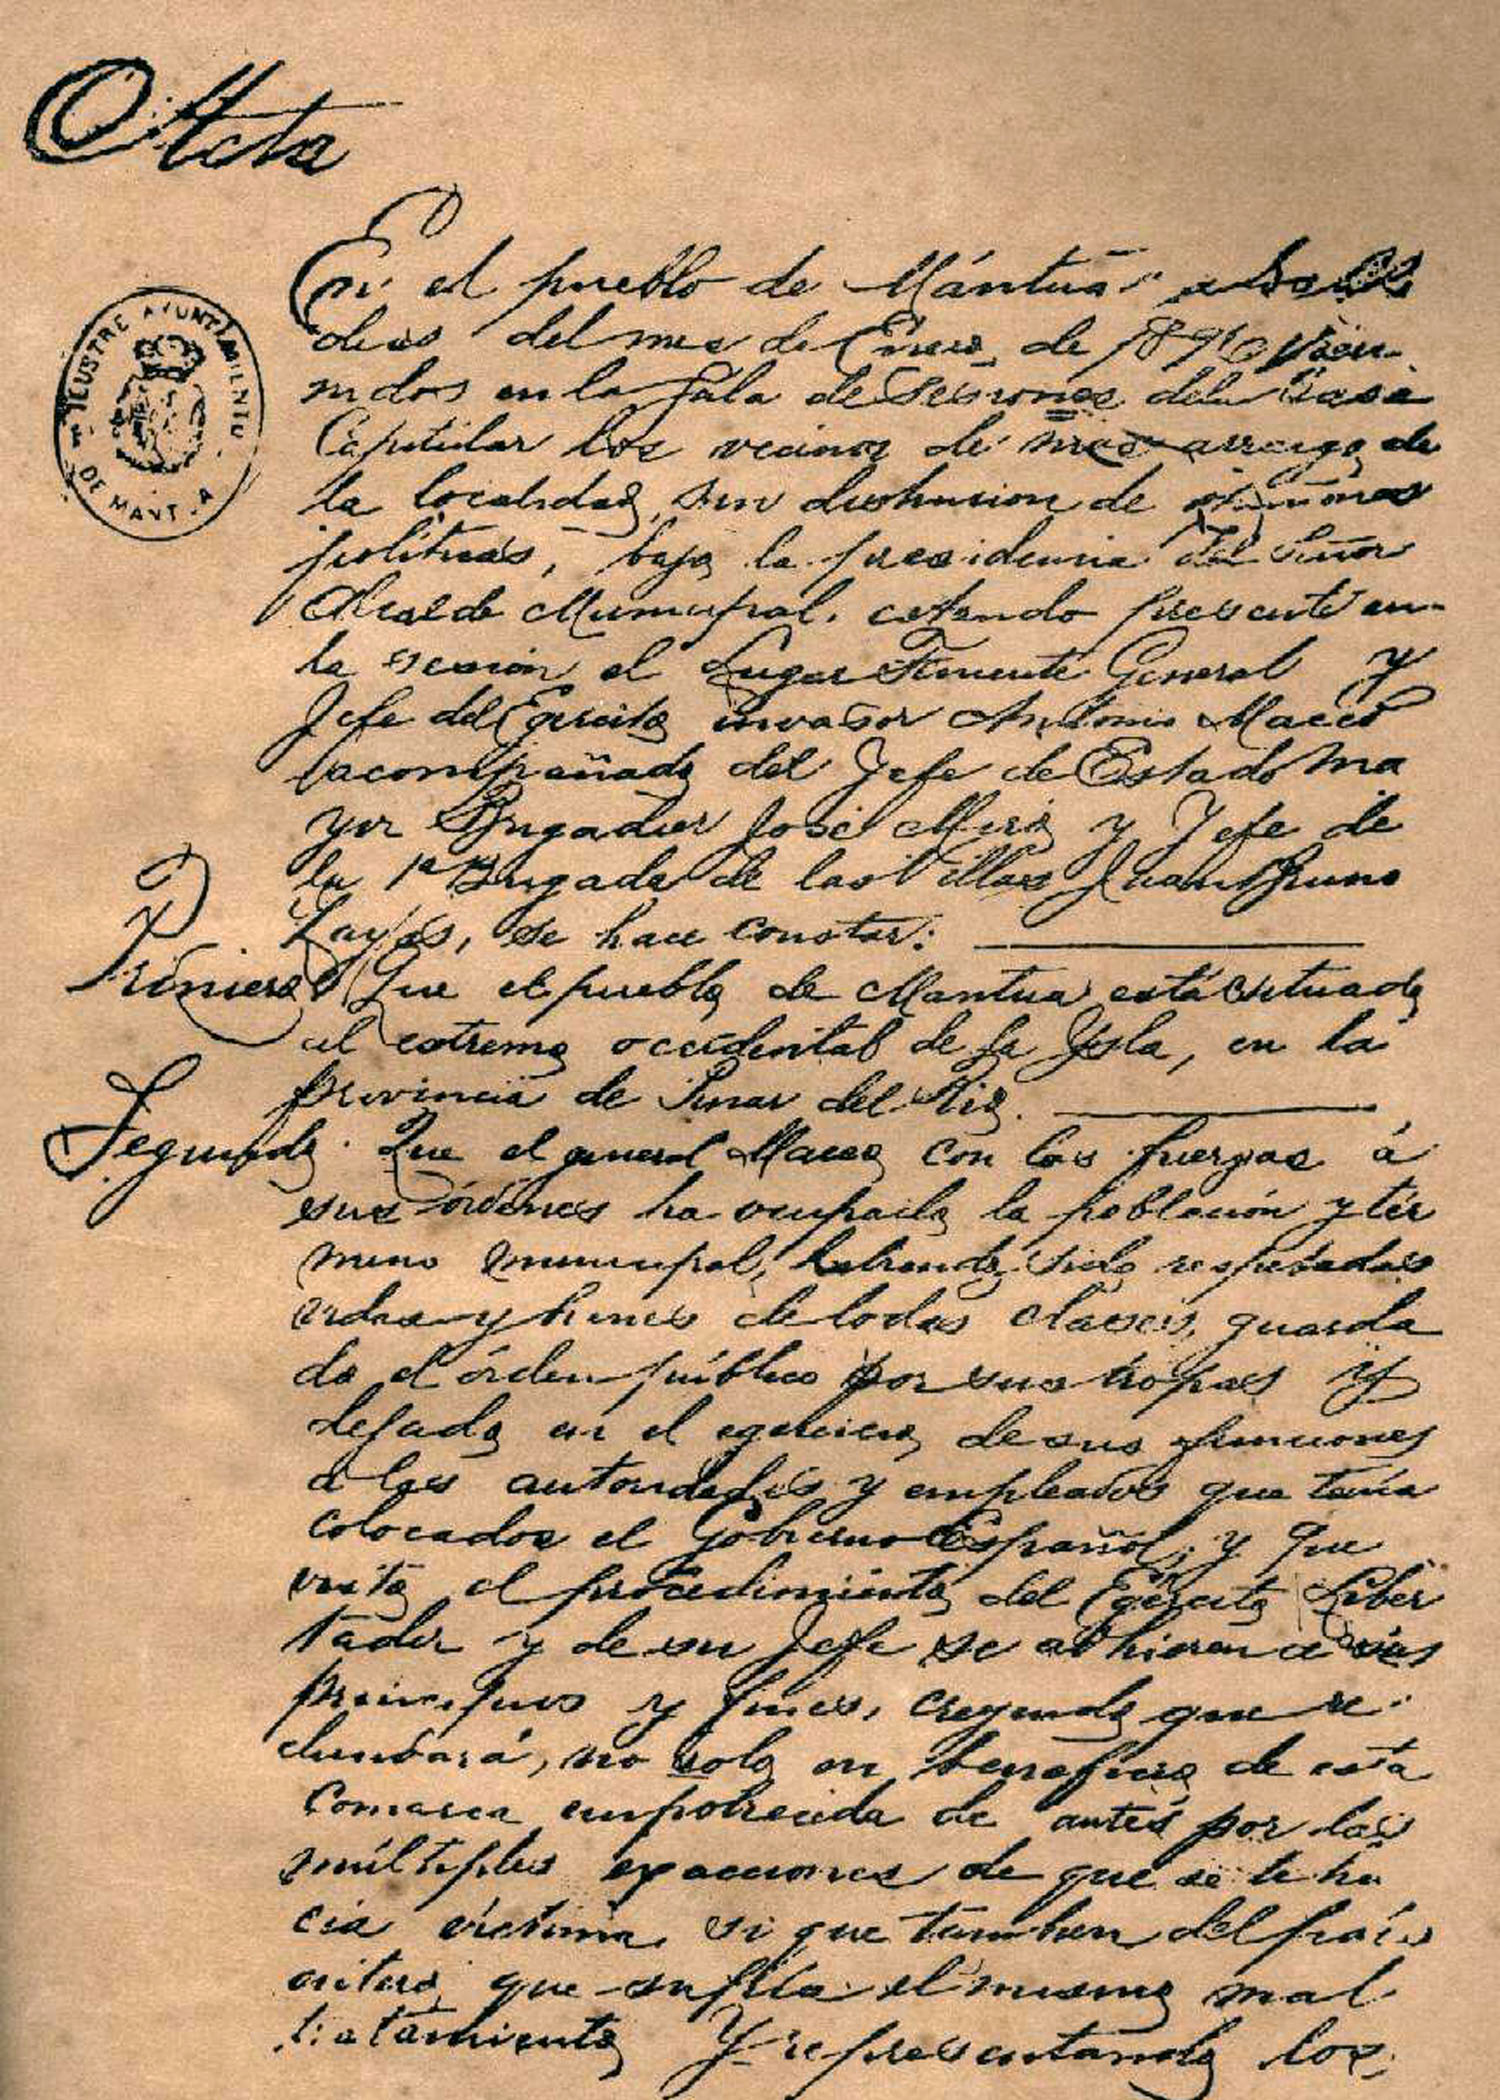 Acta
En el pueblo de Mántua a
dias del mes de Enero de 1896 reu-
nidos en la Sala de Sesiones de la Casa
Capitular los vecinos de mas arraigo de
la localidad, sin distincion de opiniones
políticas, bajo la presidencia del Señor
Alcalde Municipal, estando presente en
la sesión el Lugar Teniente General y
Jefe del Egército invasor Antonio Maceo
acompañado del Jefe de Estado Ma
yor Brigadier José Miró y Jefe de
la 1ª Brigada de las Villas Juan Bruno
Zayas, se hace constar:
Primero Que el pueblo de Mantua está situado
al extremo occidental de la Ysla, en la
provincia de Pinar del Rio.
Segundo Que el general Maceo con las fuerzas á
sus órdenes ha ocupado la población y tér
mino municipal, habiendo sido respetadas
vidas y bienes de todas clases, guarda
do el órden público por sus tropas y
dejado en el egercicio de sus funciones
a las autoridades y empleados que tenía
colocados el Gobierno Español; y que
visto el procedimiento del Egército Liber
tador y de su Jefe se adhieren a sus
principios y fines, creyendo que re-
dundará, no solo en beneficio de esta
Comarca empobrecida de antes por las
múltiples exacciones de que se le ha
cia víctima, si que tambien del país
entero que sufría el mismo mal
tratamiento Y representando los
ILUSTRE AYUNTAMIENTO
DE MANTUA